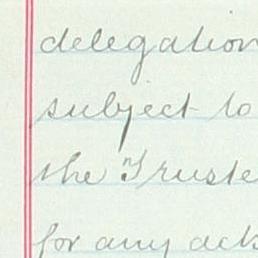 delegation
subject to
the Truste
for any acts